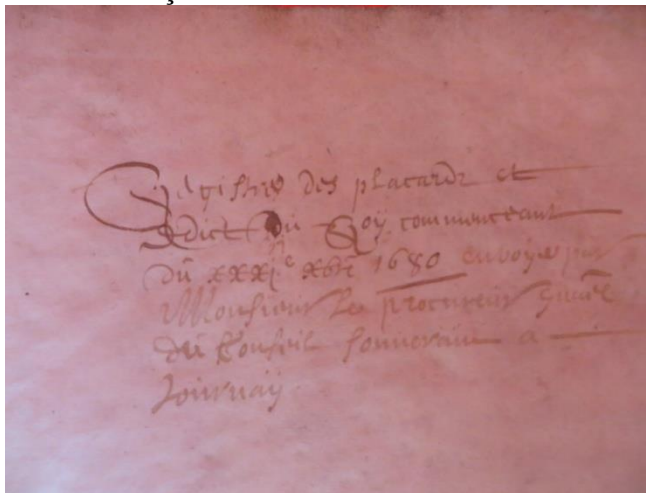 Registre des placards et
Edict du Roÿ commenceant
du XXXIe Xbre 1680 envoyé par
Monsieur le procureur
du Conseil souverain a
Tournaÿ